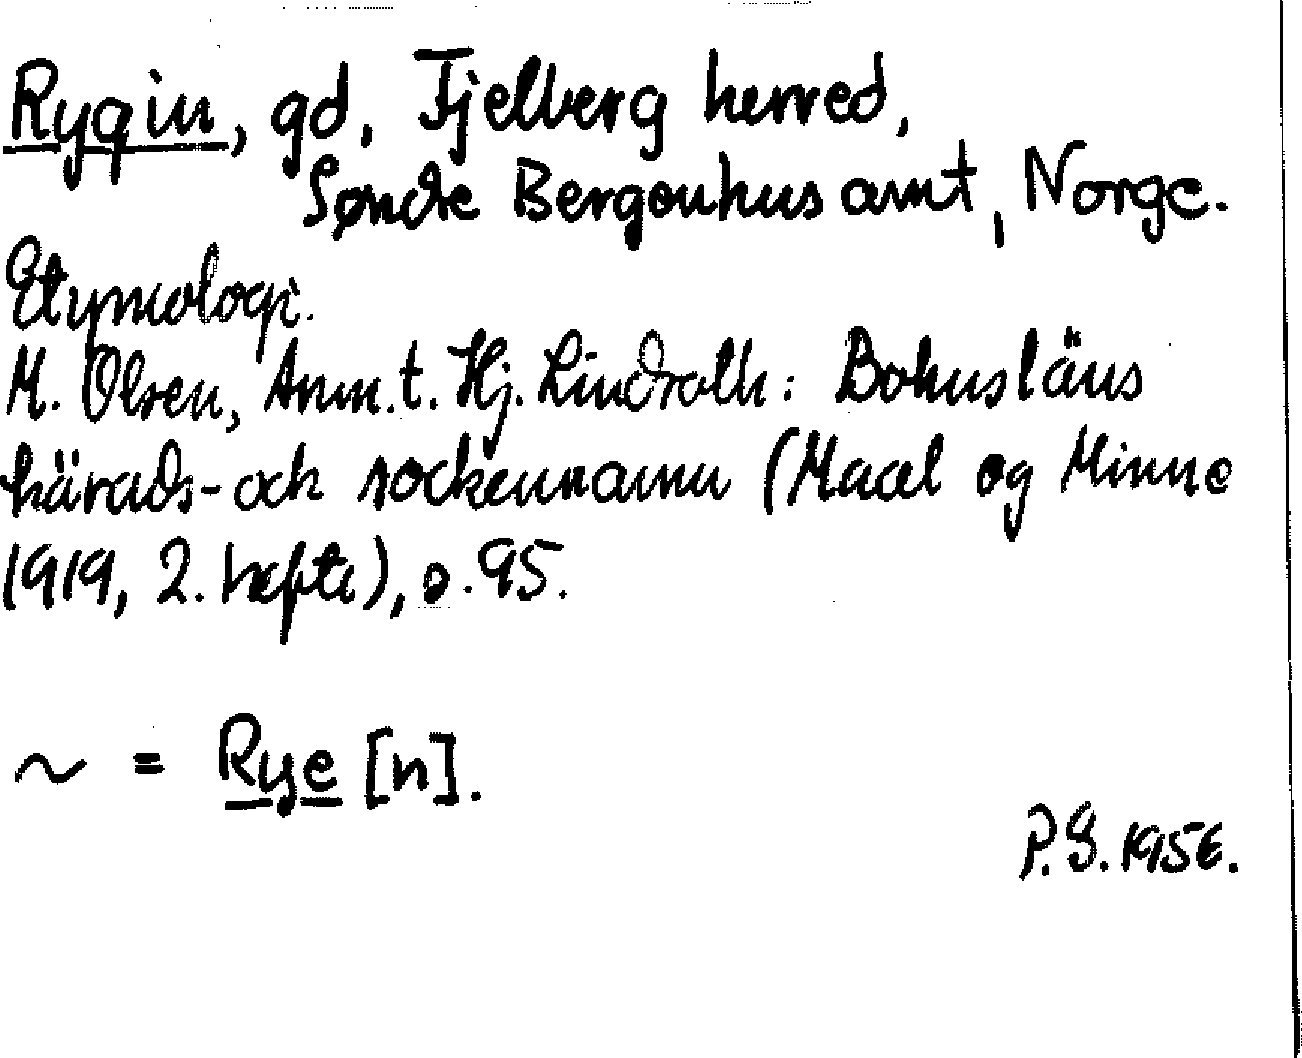 Rygin, gd, Fjelberg herred,
Søndre Bergenhus amt, Norge.
Etymologi.
M. Olsen, Anm. t. Hj. Lindroth: Bohusläns
härads- och sockennamn (Maal og Minne
1919, 2. hefte), s. 95.
~ = Rye [n].
P. S. 1956.